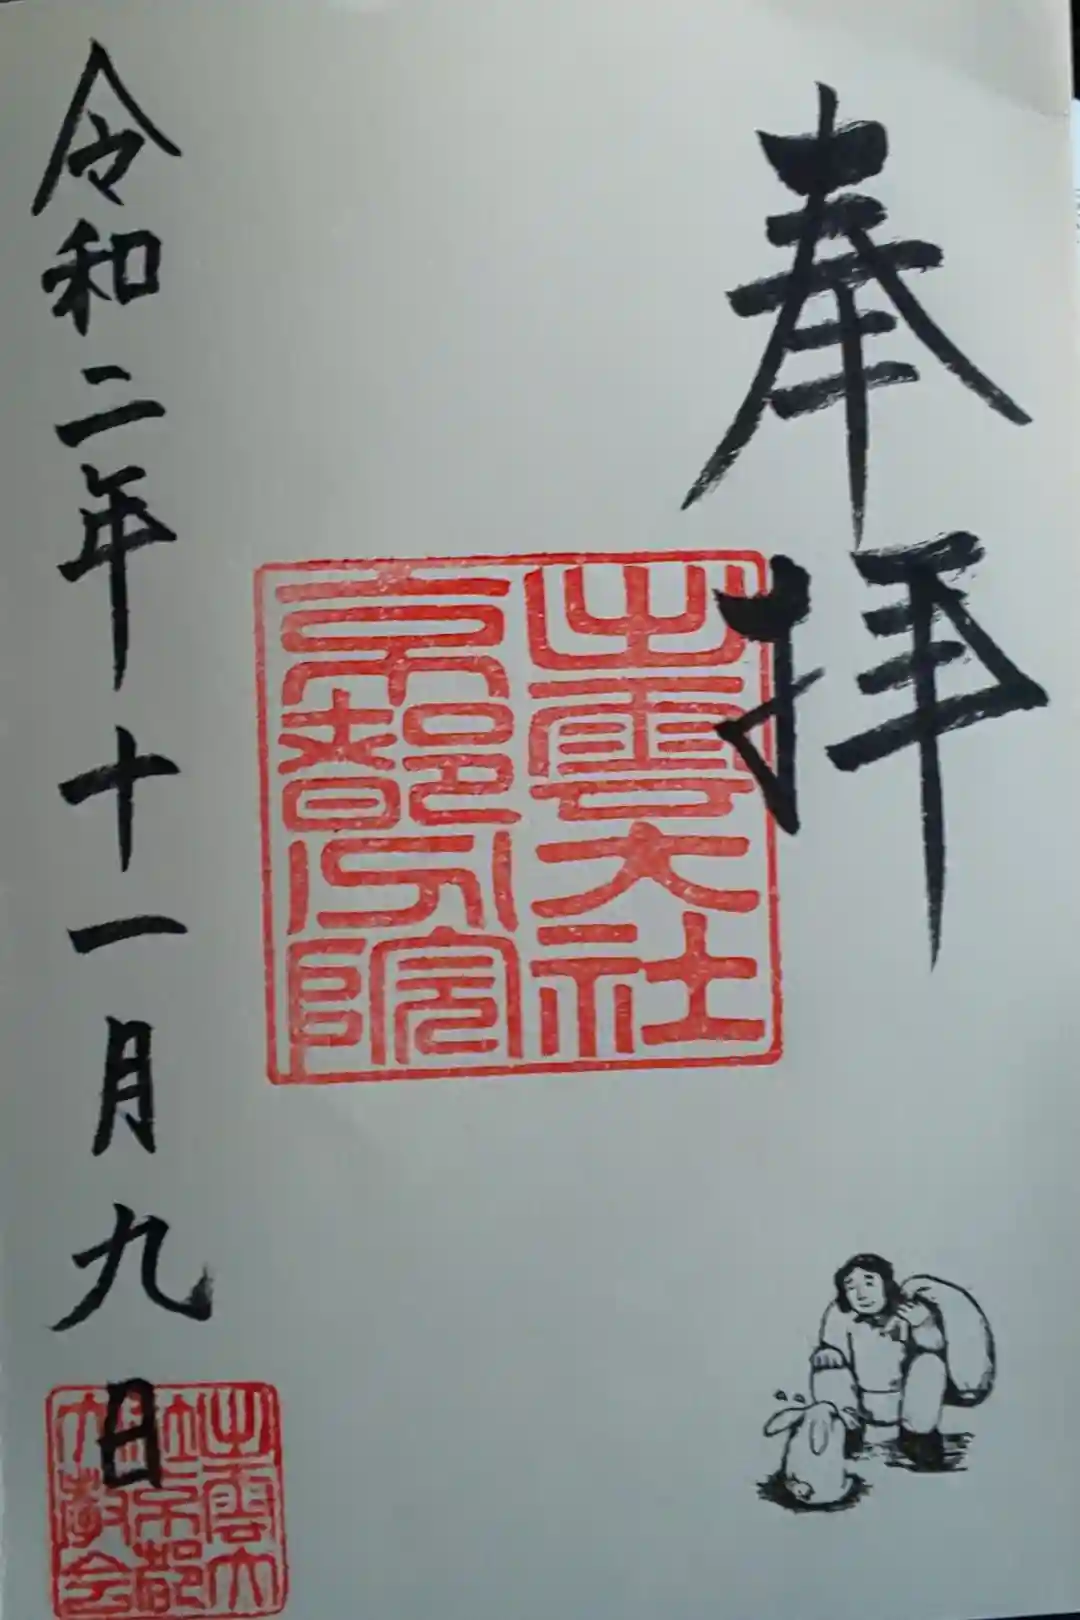 奉拝
出雲大社
京都分院
令和二年十一月九日
出雲大
社京都
教会